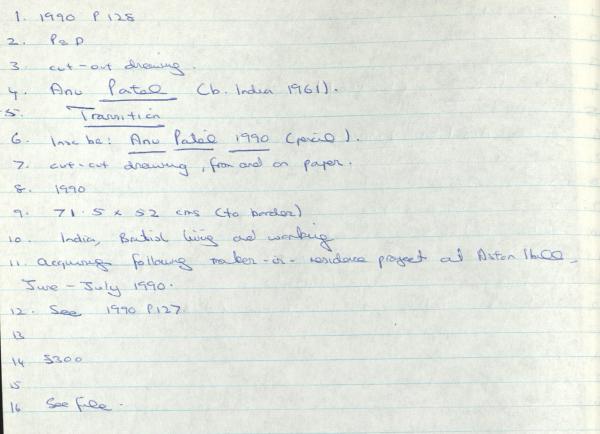 1. 1990 P128
2. P&D
3. cut-out drawing.
4. Anu Patel (b. India 1961).
5. Transition
6. Insc be: Anu Patel 1990 (pencil).
7. cut-out drawing, from and on paper.
8. 1990
9. 71.5 x 52 cms (to border)
10. India, British living and working
11. acquired following maker-in-residence project at Aston Hall,
June - July 1990.
12. See 1990 P127
13
14 £300
15
16 See file.